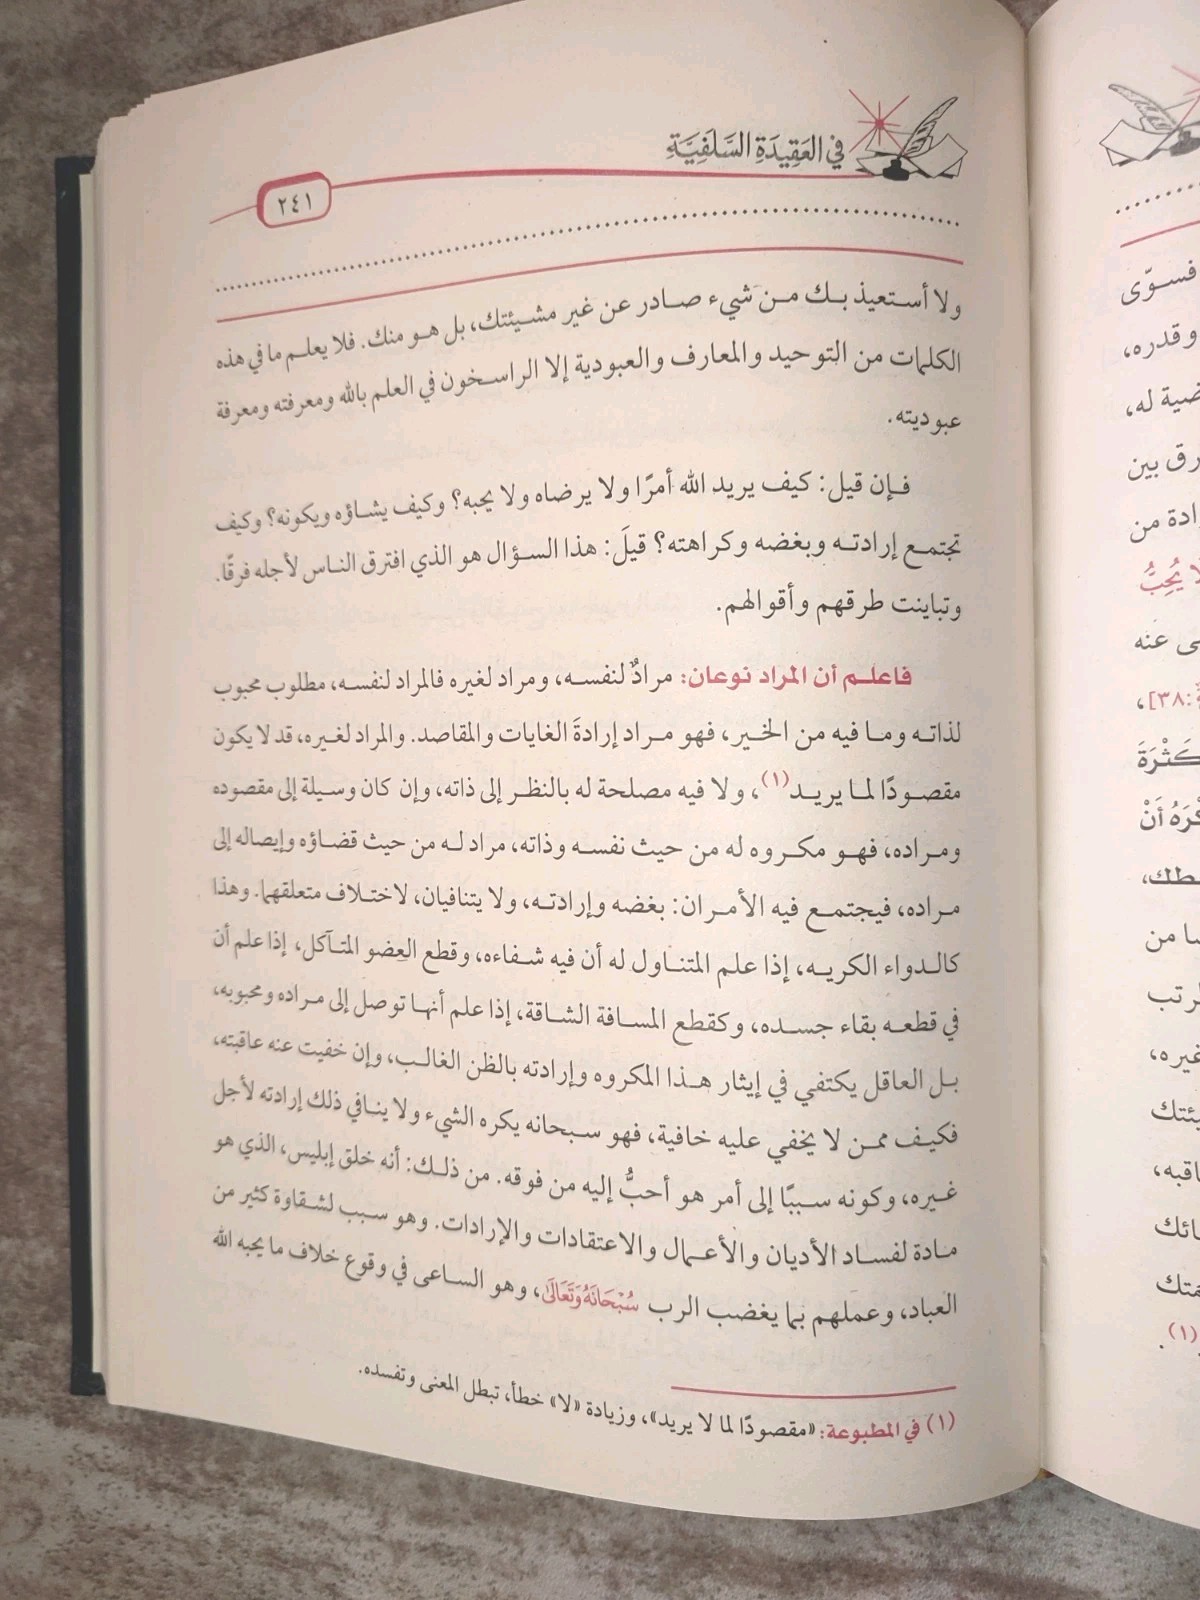 في العَقِيدَةِ السَّلَفِيَّةِ
٢٤١
ولا أستعيذ بك من شيء صادر عن غير مشيئتك، بل هو منك. فلا يعلم ما في هذه
الكلمات من التوحيد والمعارف والعبودية إلا الراسخون في العلم بالله ومعرفته ومعرفة
عبوديته.
فإن قيل: كيف يريد الله أمرًا ولا يرضاه ولا يحبه؟ وكيف يشاؤه ويكونه؟ وكيف
تجتمع إرادته وبغضه وكراهته؟ قيلَ: هذا السؤال هو الذي افترق الناس لأجله فرقًا.
وتباينت طرقهم وأقوالهم.
فاعلم أن المراد نوعان: مرادٌ لنفسه، ومراد لغيره فالمراد لنفسه، مطلوب محبوب
لذاته وما فيه من الخير، فهو مراد إرادةَ الغايات والمقاصد. والمراد لغيره، قد لا يكون
مقصودًا لما يريد(١)، ولا فيه مصلحة له بالنظر إلى ذاته، وإن كان وسيلة إلى مقصوده
ومراده، فهو مكروه له من حيث نفسه وذاته، مراد له من حيث قضاؤه وإيصاله إلى
مراده، فيجتمع فيه الأمران: بغضه وإرادته، ولا يتنافيان، لاختلاف متعلقهما. وهذا
كالدواء الكريه، إذا علم المتناول له أن فيه شفاءه، وقطع العضو المتآكل، إذا علم أن
في قطعه بقاء جسده، وكقطع المسافة الشاقة، إذا علم أنها توصل إلى مراده ومحبوبه،
بل العاقل يكتفي في إيثار هذا المكروه وإرادته بالظن الغالب، وإن خفيت عنه عاقبته،
فكيف ممن لا يخفي عليه خافية، فهو سبحانه يكره الشيء ولا ينافي ذلك إرادته لأجل
غيره، وكونه سببًا إلى أمر هو أحبُّ إليه من فوقه. من ذلك: أنه خلق إبليس، الذي هو
مادة لفساد الأديان والأعمال والاعتقادات والإرادات. وهو سبب لشقاوة كثير من
العباد، وعملهم بما يغضب الرب سُبْحَانَهُ وَتَعَالَىٰ، وهو الساعى في وقوع خلاف ما يحبه الله
(١) في المطبوعة: «مقصودًا لما لا يريد»، وزيادة «لا» خطأ، تبطل المعنى وتفسده.
فسوّى
وقدره،
ضية له،
رق بين
ادة من
لا يُحِبُّ
ى عنه
:٣٨]،
كَثْرَةَ
كْرَهُ أَنْ
خطك،
ا من
رتب
غيره،
يئتك
اقبه،
ائك
متك
(١).